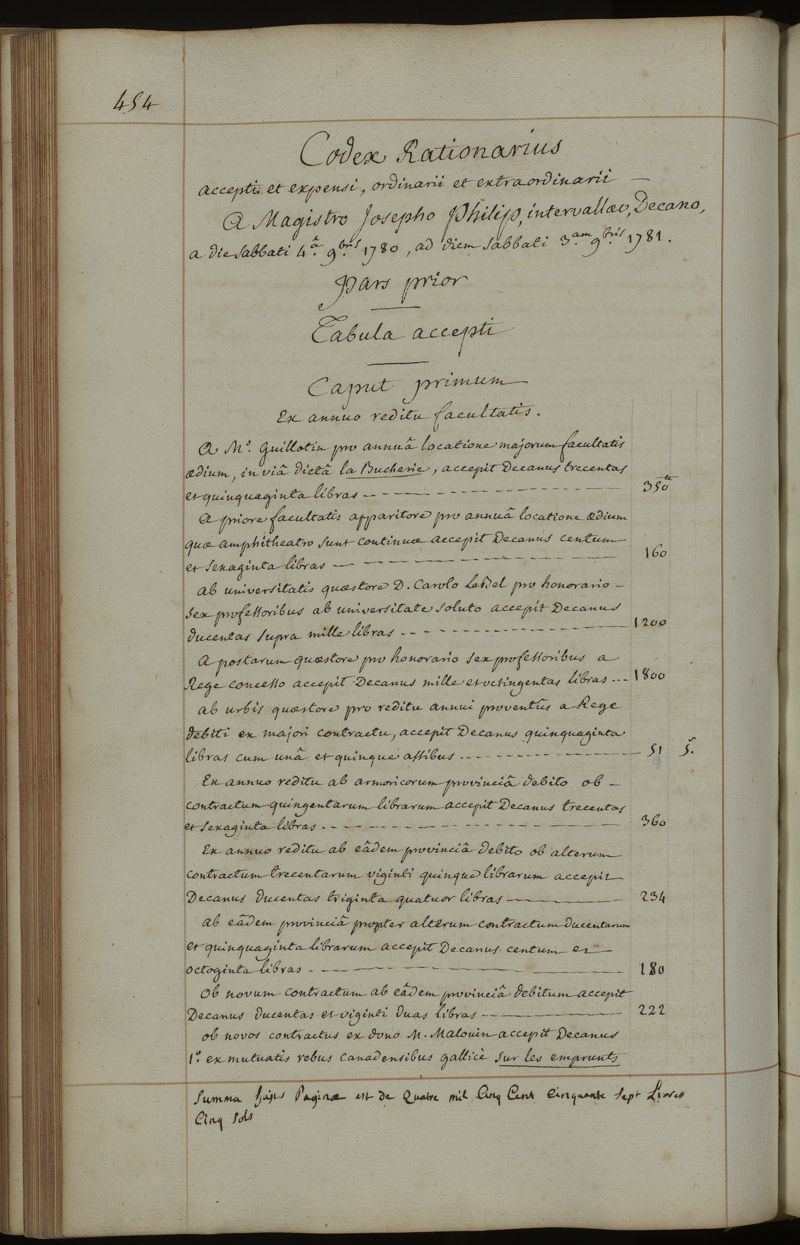 454
Codex Rationarius
accepti et expensi, ordinarii et extraordinarii —
A Magistro Josepho Philip, intervallæo, Decano,
a die sabbati 4.â 9.bris 1780, ad diem sabbati 3.am 9.bris 1781.
Pars prior
Tabula accepti
Caput primum
Ex annuo reditu facultatis.
A M.o Guillotin pro annuâ locatione majorum facultatis
ædium, in viâ dictâ la Bucherie, accepit Decanus trecentas
et quinquaginta libras — 350tt
A priore facultatis apparitore pro annuâ locatione ædium
quæ amphitheatro sunt continuæ accepit Decanus centum
et sexaginta libras — 160
Ab universitatis quæstore D. Carolo Lebel pro honorario
sex professoribus ab universitate soluto accepit Decanus
ducentas supra mille libras — 1200
A postarum quæstore pro honorario sex professoribus a
Rege concesso accepit Decanus mille et octingentas libras ... 1800
ab urbis quæstore pro reditu annui proventûs a Rege
debiti ex majori contractu, accepit Decanus quinquaginta
libras cum unâ et quinque assibus — 51 5.s
Ex annuo reditu ab armoricorum provinciâ debito ob
contractum quingentarum librarum accepit Decanus trecentas
et sexaginta libras — 360
Ex annuo reditu ab eâdem provinciâ debito ob alterum
contractum trecentarum viginti quinque librarum accepit
Decanus ducentas triginta quatuor libras — 234
ab eâdem provinciâ propter alterum contractum ducentarum
et quinquaginta librarum accepit Decanus centum et
octoginta libras — 180
Ob novum contractum ab eâdem provinciâ debitum accepit
Decanus ducentas et viginti duas libras — 222
ob novos contractus ex dono M. Malouin accepit Decanus
1.o ex mutuatis rebus canadensibus gallicè sur les emprunts
Summa hujus Paginæ est de Quatre mil Cinq Cent Cinquante Sept Livres
Cinq sols